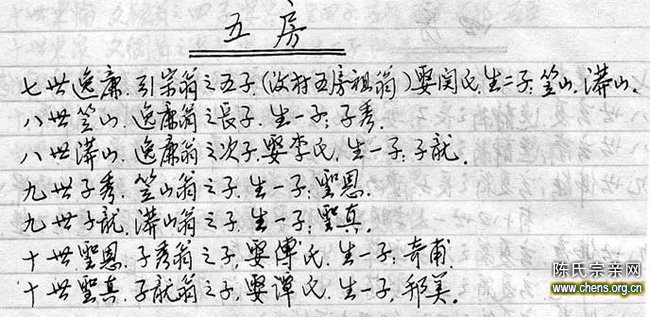 五房
七世逸廉.引宗翁之五子(汶村五房祖翁)娶関氏.生二子:笠山.漭山.
八世笠山.逸廉翁之長子.生一子:子秀.
八世漭山.逸廉翁之次子.娶李氏.生一子:子龍.
九世子秀.笠山翁之子.生一子:聖恩.
九世子龍.漭山翁之子.生一子:聖真.
十世聖恩.子秀翁之子.娶傅氏.生一子:奇甫.
十世聖真.子龍翁之子.娶譚氏.生一子.邦美.
陈氏宗亲网
www.chens.org.cn